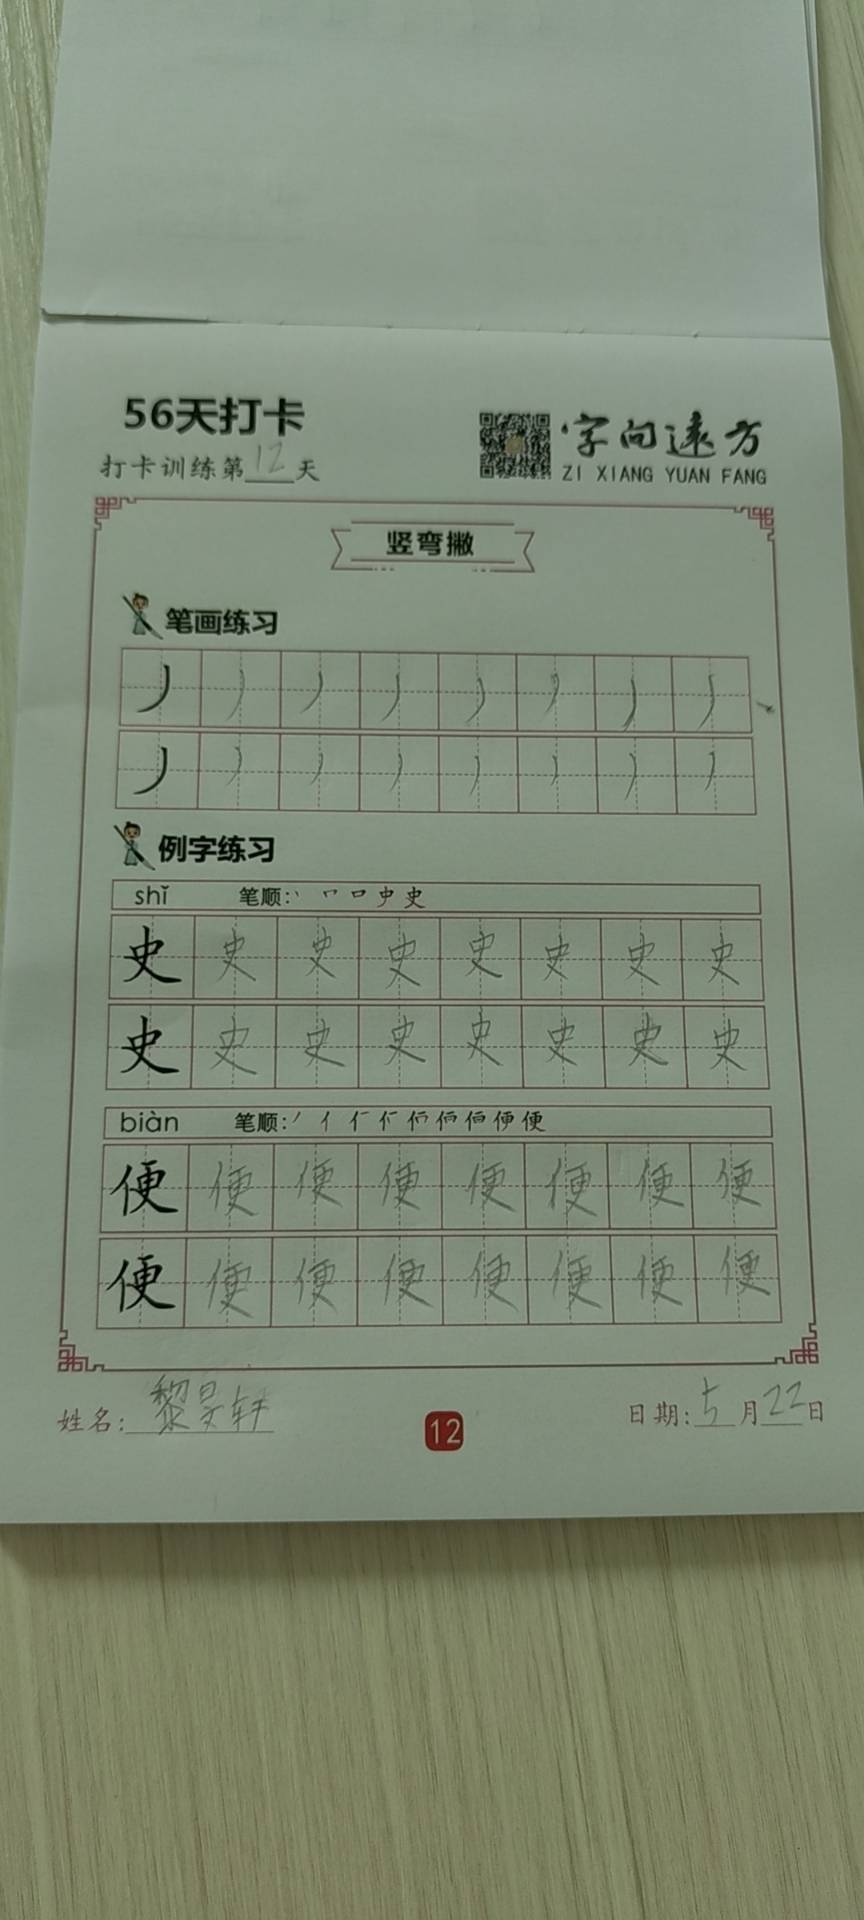 56天打卡
打卡训练第12天
字向远方
ZI XIANG YUAN FANG
竖弯撇
笔画练习
丿 丿 丿 丿 丿 丿 丿 丿
丿 丿 丿 丿 丿 丿 丿 丿
例字练习
shǐ 笔顺: 丶 𠃍 口 史 史
史 史 史 史 史 史 史 史
史 史 史 史 史 史 史 史
biàn 笔顺:
便 便 便 便 便 便 便 便
便 便 便 便 便 便 便 便
姓名: 黎昊轩
12
日期: 5月22日